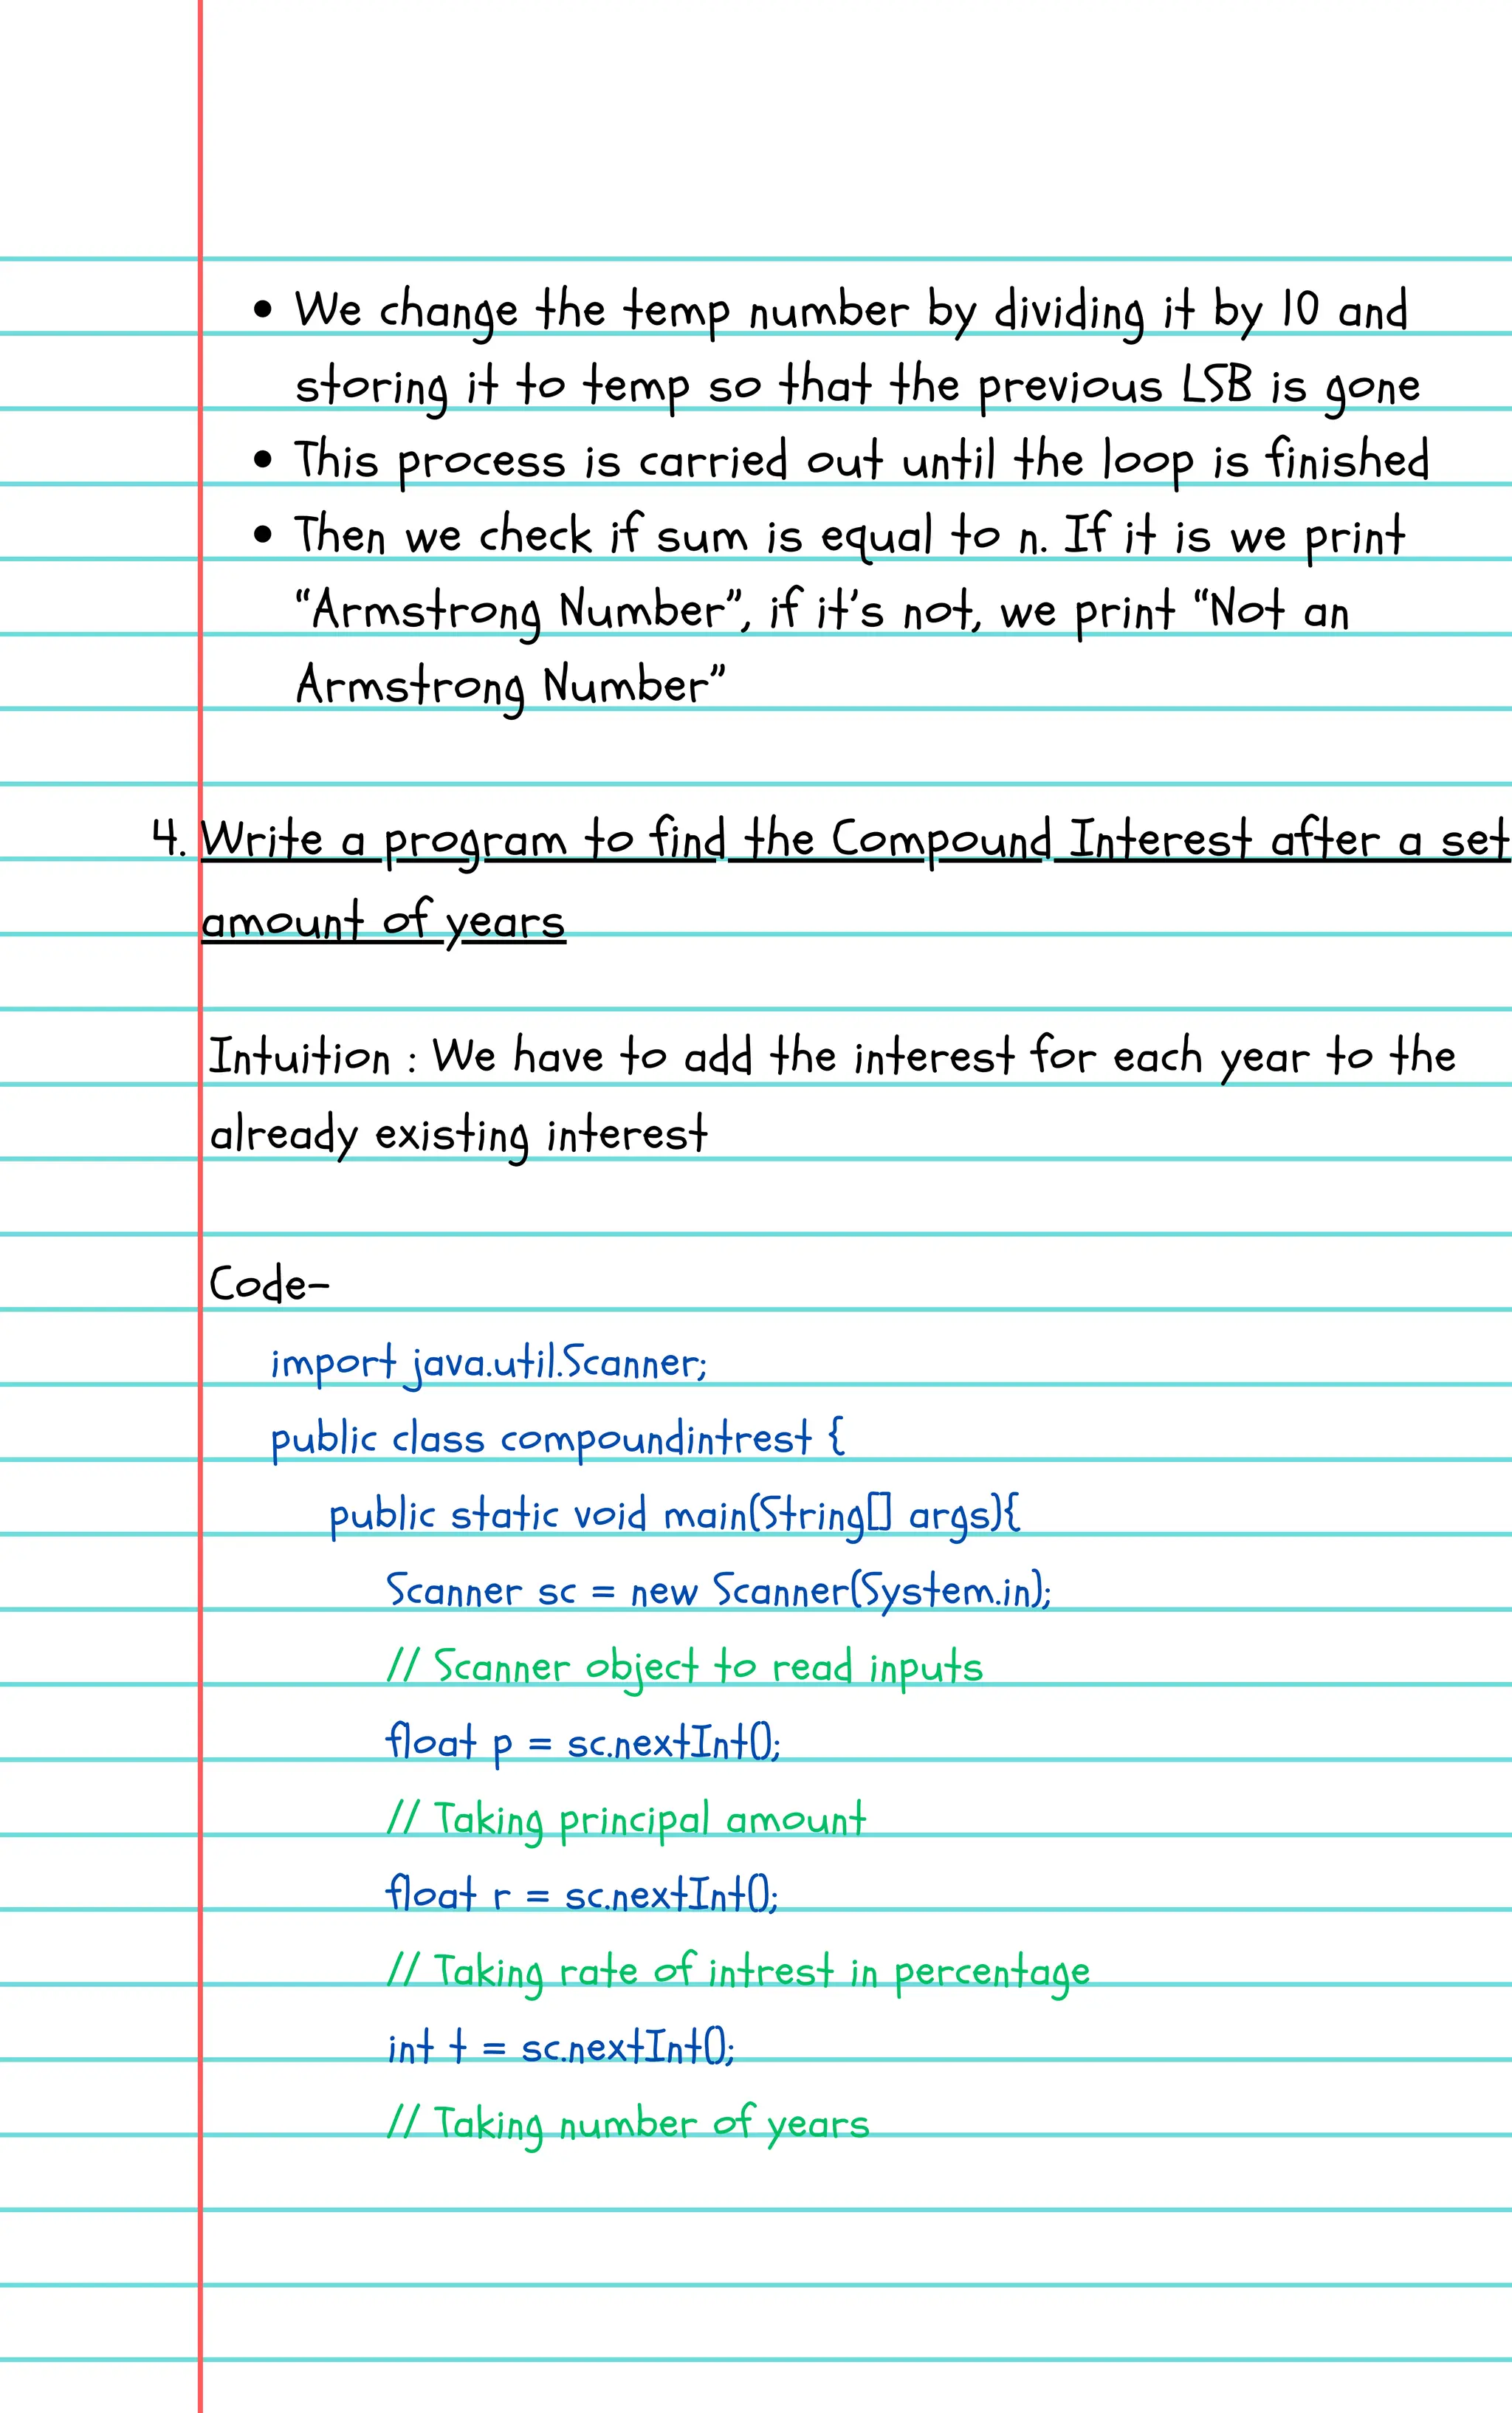 • We change the temp number by dividing it by 10 and
storing it to temp so that the previous LSB is gone
• This process is carried out until the loop is finished
• Then we check if sum is equal to n. If it is we print
“Armstrong Number”, if it's not, we print “Not an
Armstrong Number”
4. Write a program to find the Compound Interest after a set
amount of years
Intuition : We have to add the interest for each year to the
already existing interest
Code-
import java.util.Scanner;
public class compoundintrest {
public static void main(String[] args){
Scanner sc = new Scanner(System.in);
// Scanner object to read inputs
float p = sc.nextInt();
// Taking principal amount
float r = sc.nextInt();
// Taking rate of intrest in percentage
int t = sc.nextInt();
// Taking number of years